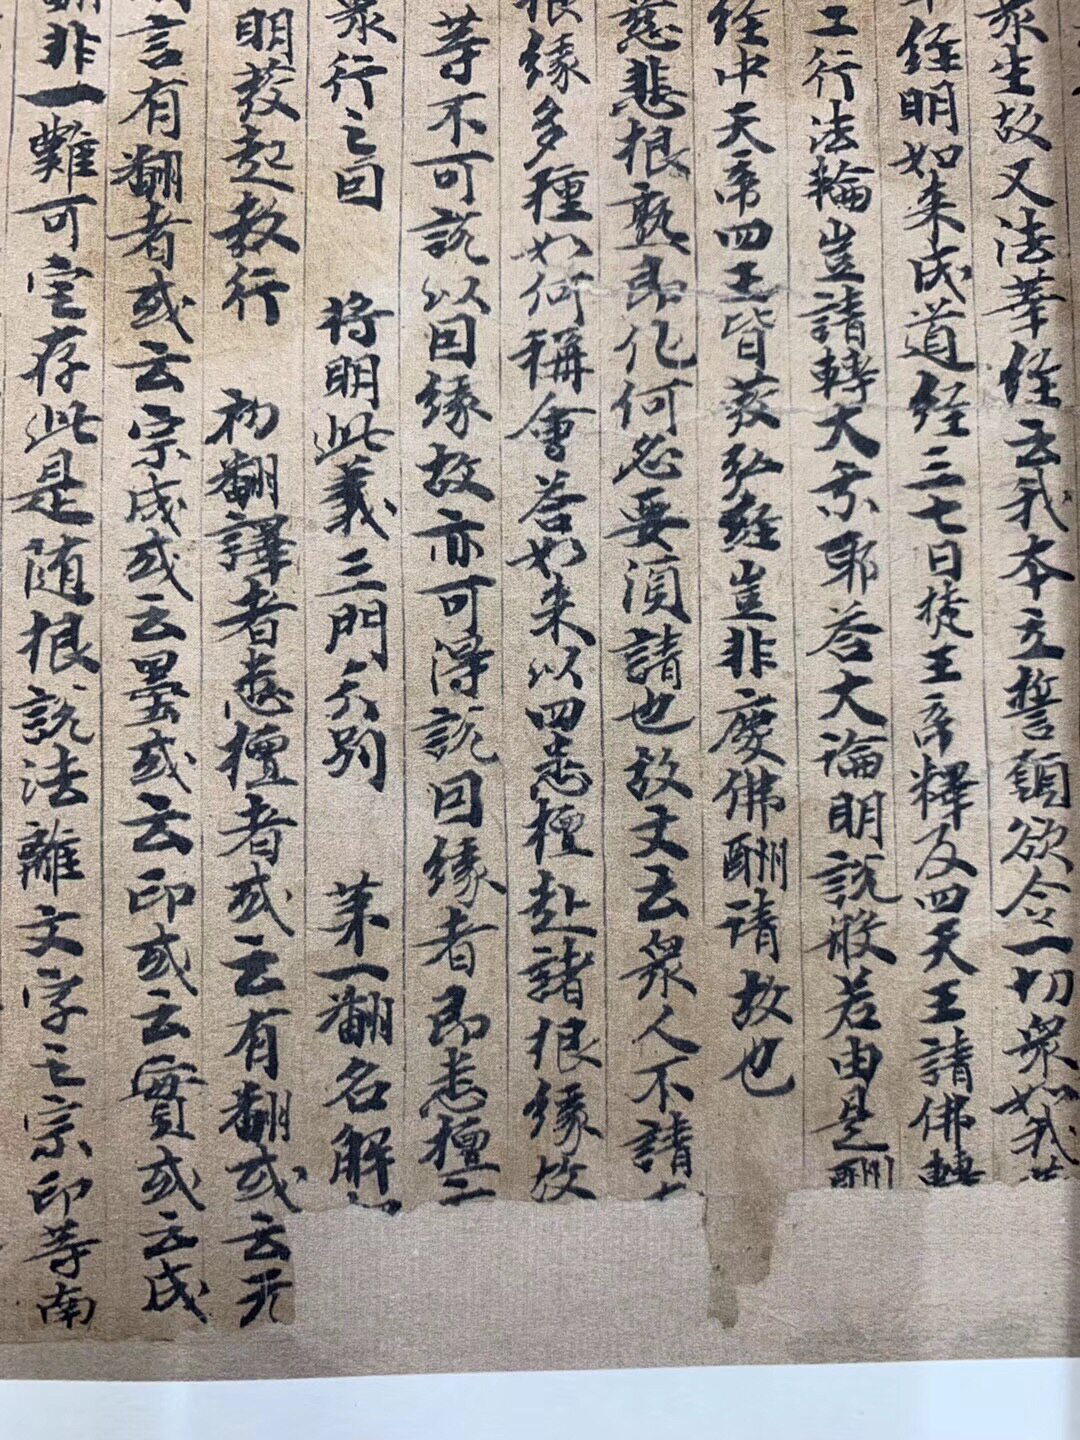 眾生故又法華經云我本立誓願欲令一切衆如我
經明如来成道經三七日梵王帝釋及四天王請佛轉
工行法輪豈請轉大乘耶荅大論明說般若由是酬
经中天帝四王皆發弘經豈非慶佛酬請故也
慈悲根熟即化何必要湏請也故文云衆人不請
根緣多種如何稱會荅如来以四悉檀赴諸根緣故
等不可說以因緣故亦可得說因緣者即悉檀
眾行之因 将明此義三門分別 苐一翻名解
明發起教行 初翻譯者悉檀者或云有翻或云无
言有翻者或云宗成或云墨或云印或云實或云成
非一難可定存此是随根說法離文字之宗印等南